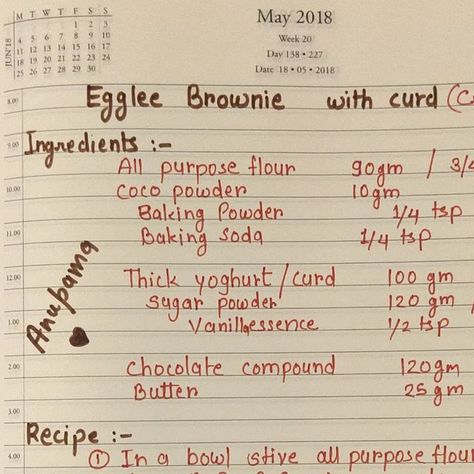 JUN'18
M T W T F S S
1 2 3
4 5 6 7 8 9 10
11 12 13 14 15 16 17
18 19 20 21 22 23 24
25 26 27 28 29 30
May 2018
Week 20
Day 138 • 227
Date 18 • 05 • 2018
8.00
Egglee Brownie with curd (C
9.00
Ingredients :-
All purpose flour 90gm / 3/4
10.00
Coco powder 10gm
Baking Powder 1/4 tsp
11.00
Baking Soda 1/4 tsp
12.00
Thick yoghurt/curd 100 gm
Sugar powder 120 gm
1.00
Vanillaessence 1/2 tsp
Anupama
2.00
Chocolate compound 120gm
Butter 25 gm
3.00
Recipe :-
4.00
① In a bowl stive all purpose flour